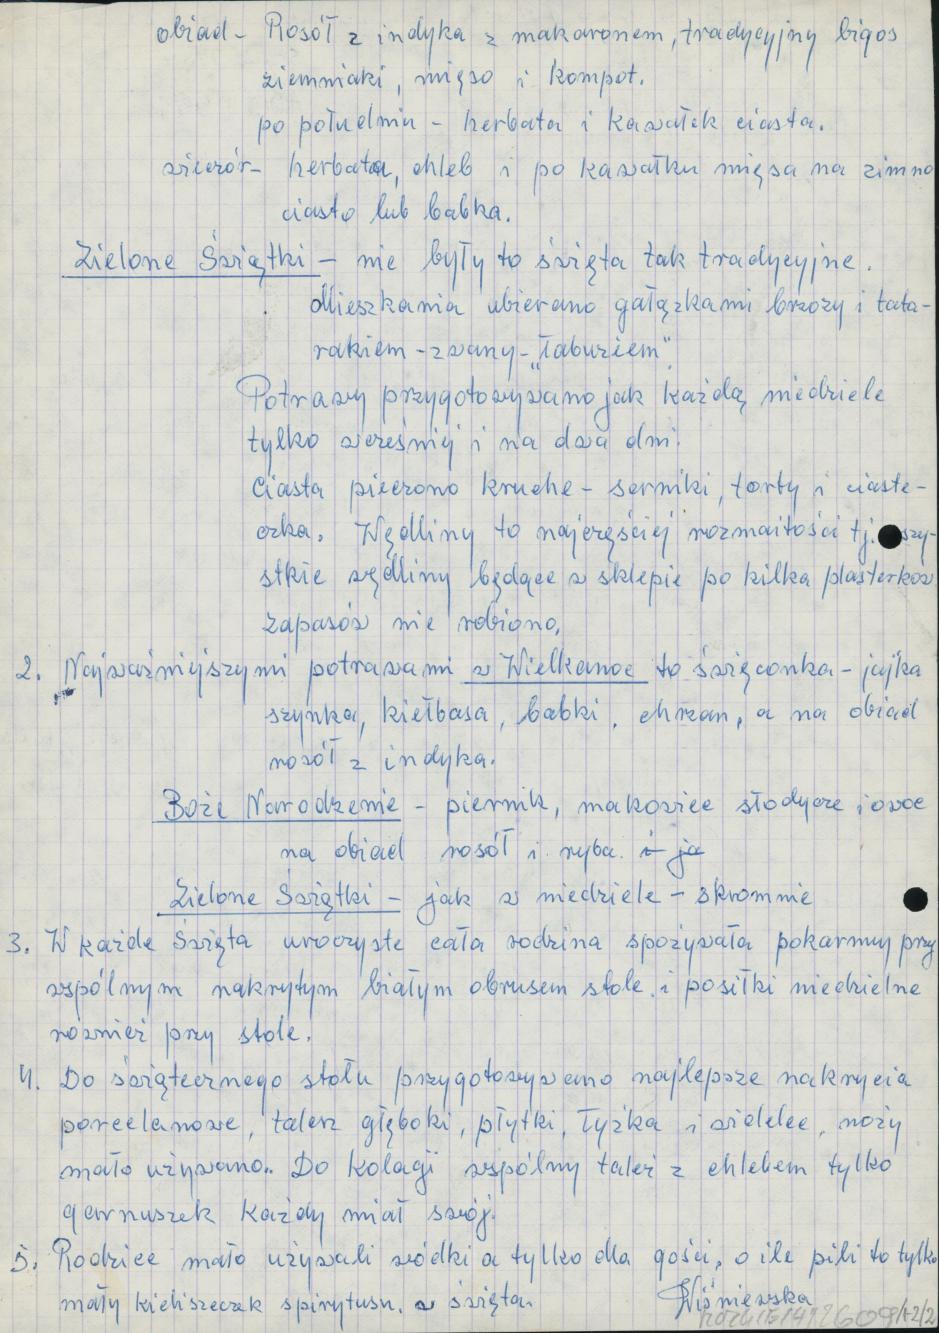 obiad - Rosół z indyka z makaronem, tradycyjny bigos
ziemniaki, mięso i kompot.
po południu - herbata i kawałek ciasta.
wieczór - herbata, chleb i po kawałku mięsa na zimno
ciasto lub babka.
Zielone Świątki - nie były to święta tak tradycyjne.
Mieszkania ubierano gałązkami brzozy i tata-
rakiem - zwany - "łabuziem"
Potrawy przygotowywano jak każdą niedziele
tylko wcześniej i na dwa dni.
Ciasta pieczono kruche - serniki, torty i ciaste-
czka. Wędliny to najczęściej rozmaitości tj. wszy-
stkie wędliny będące w sklepie po kilka plasterków
zapasów nie robiono,
2. Najważniejszymi potrawami w Wielkanoc to święconka - jajka
szynka, kiełbasa, babki, chrzan, a na obiad
rosół z indyka.
Boże Narodzenie - piernik, makowiec słodycze i owoc
na obiad rosół i ryba. i ja
Zielone Świątki - jak w niedziele - skromnie
3. W każde Święta uroczyste cała rodzina spożywała pokarmy przy
wspólnym nakrytym białym obrusem stole. i posiłki niedzielne
również przy stole.
4. Do świątecznego stołu przygotowywano najlepsze nakrycia
porcelanowe, talerz głęboki, płytki, łyżka i widelec, noży
mało używano.. Do kolacji wspólny talerz z chlebem tylko
garnuszek każdy miał swój.
5. Rodzice mało używali wódki a tylko dla gości, o ile pili to tylko
mały kieliszeczek spirytusu. w święta. Wiśniewska